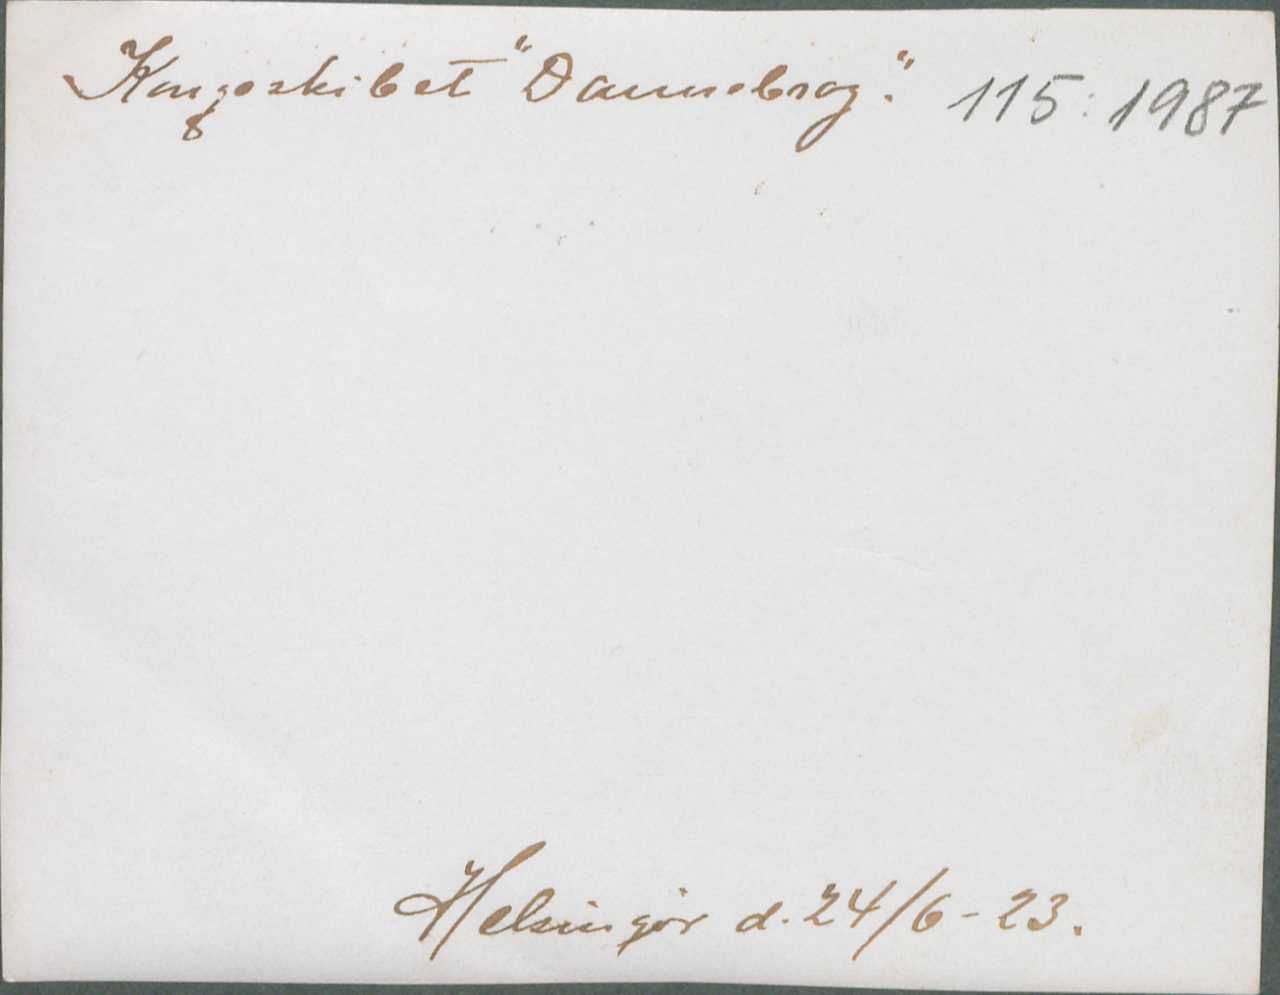 Kongeskibet "Dannebrog". 115:1987
Helsingör d. 24/6-23.